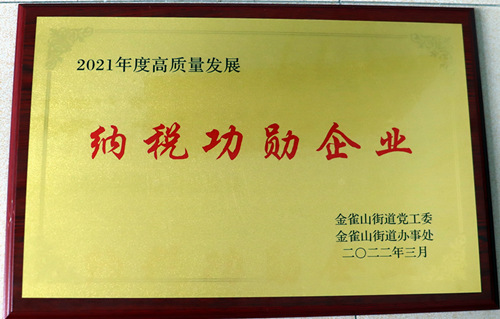 2021年度高质量发展
纳税功勋企业
金雀山街道党工委
金雀山街道办事处
二〇二二年三月